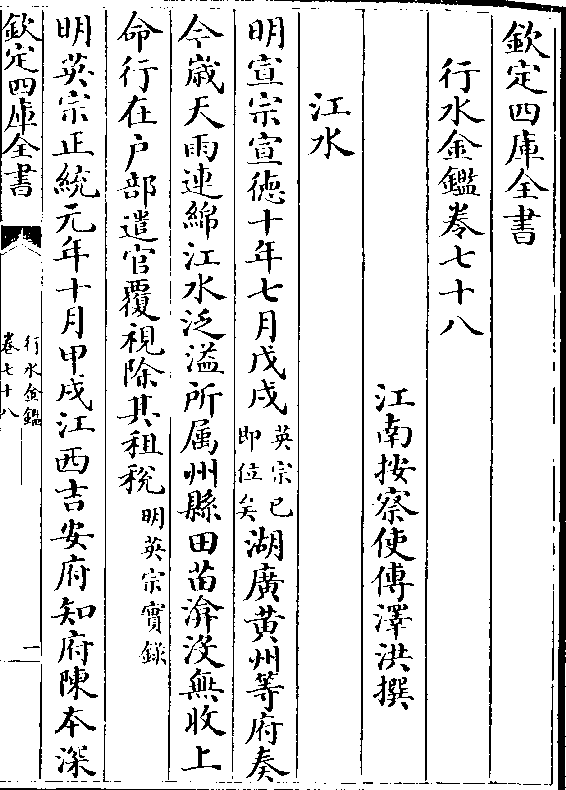 欽定四庫全書
行水金鑑卷七十八
江南按察使傅澤洪撰
江水
明宣宗宣徳十年七月戊戌英宗已即位矣湖廣黄州等府奏
今嵗天雨連綿江水泛溢所属州縣田苗渰没無收上
命行在户部遣官覆視除其租稅明英宗實錄
明英宗正統元年十月甲戌江西吉安府知府陳本深
欽定四庫全書
行水金鑑
卷七十八
一